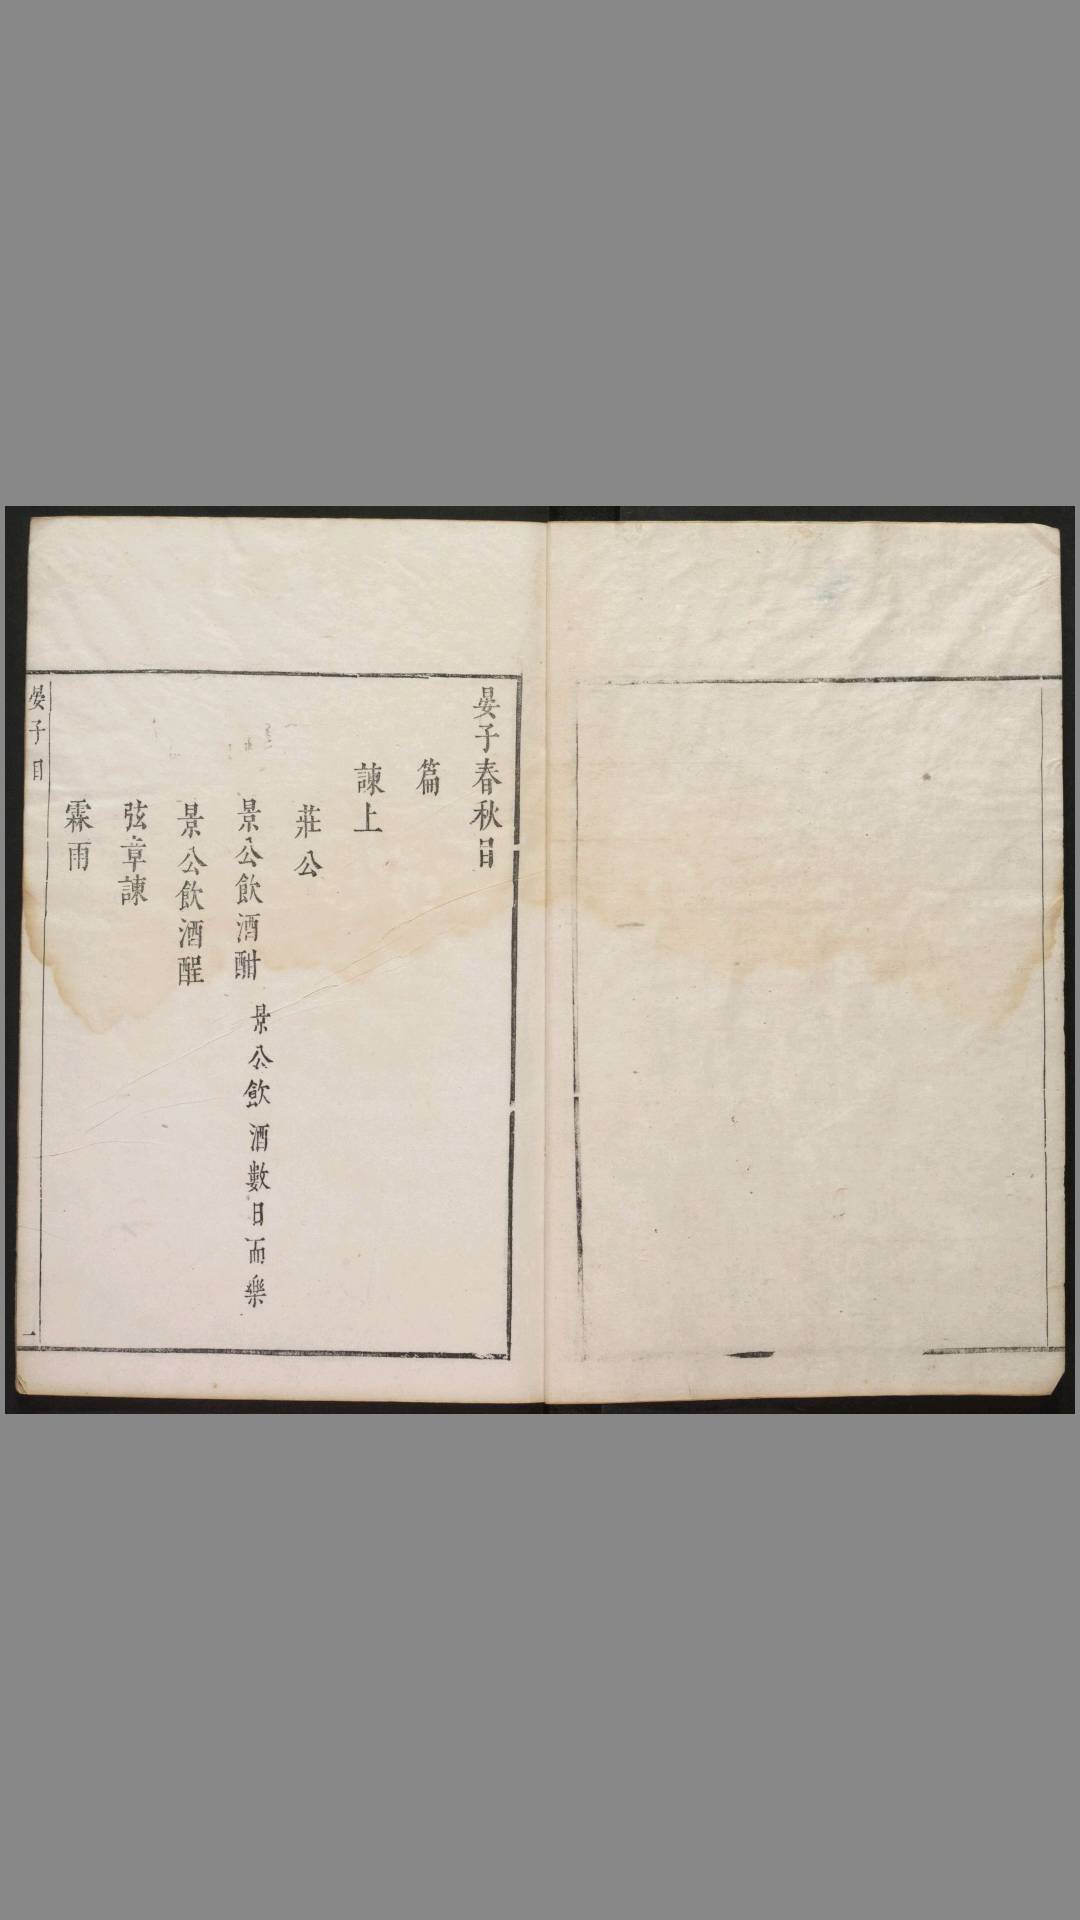 晏子春秋目
篇
諫上
莊公
景公飲酒酣 景公飲酒數日而樂
景公飲酒酲
弦章諫
霖雨
晏子目 一